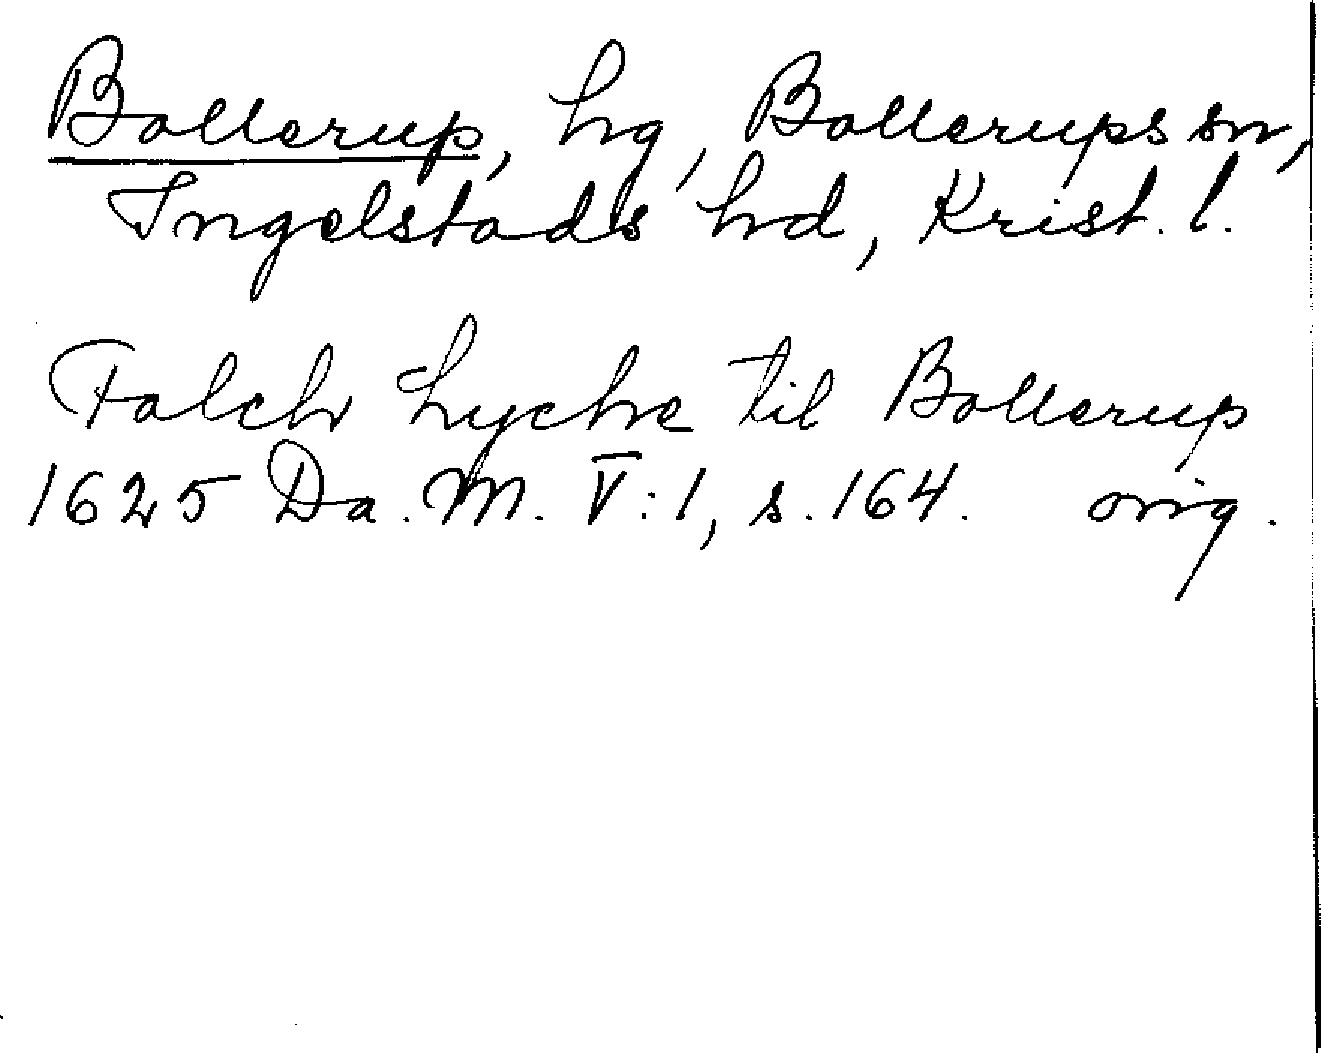 Bollerup, hg, Bollerups sn,
Ingelstads hd, Krist. l.
Falch Lycke til Bollerup
1625 Da. M. V:1, s. 164. orig.